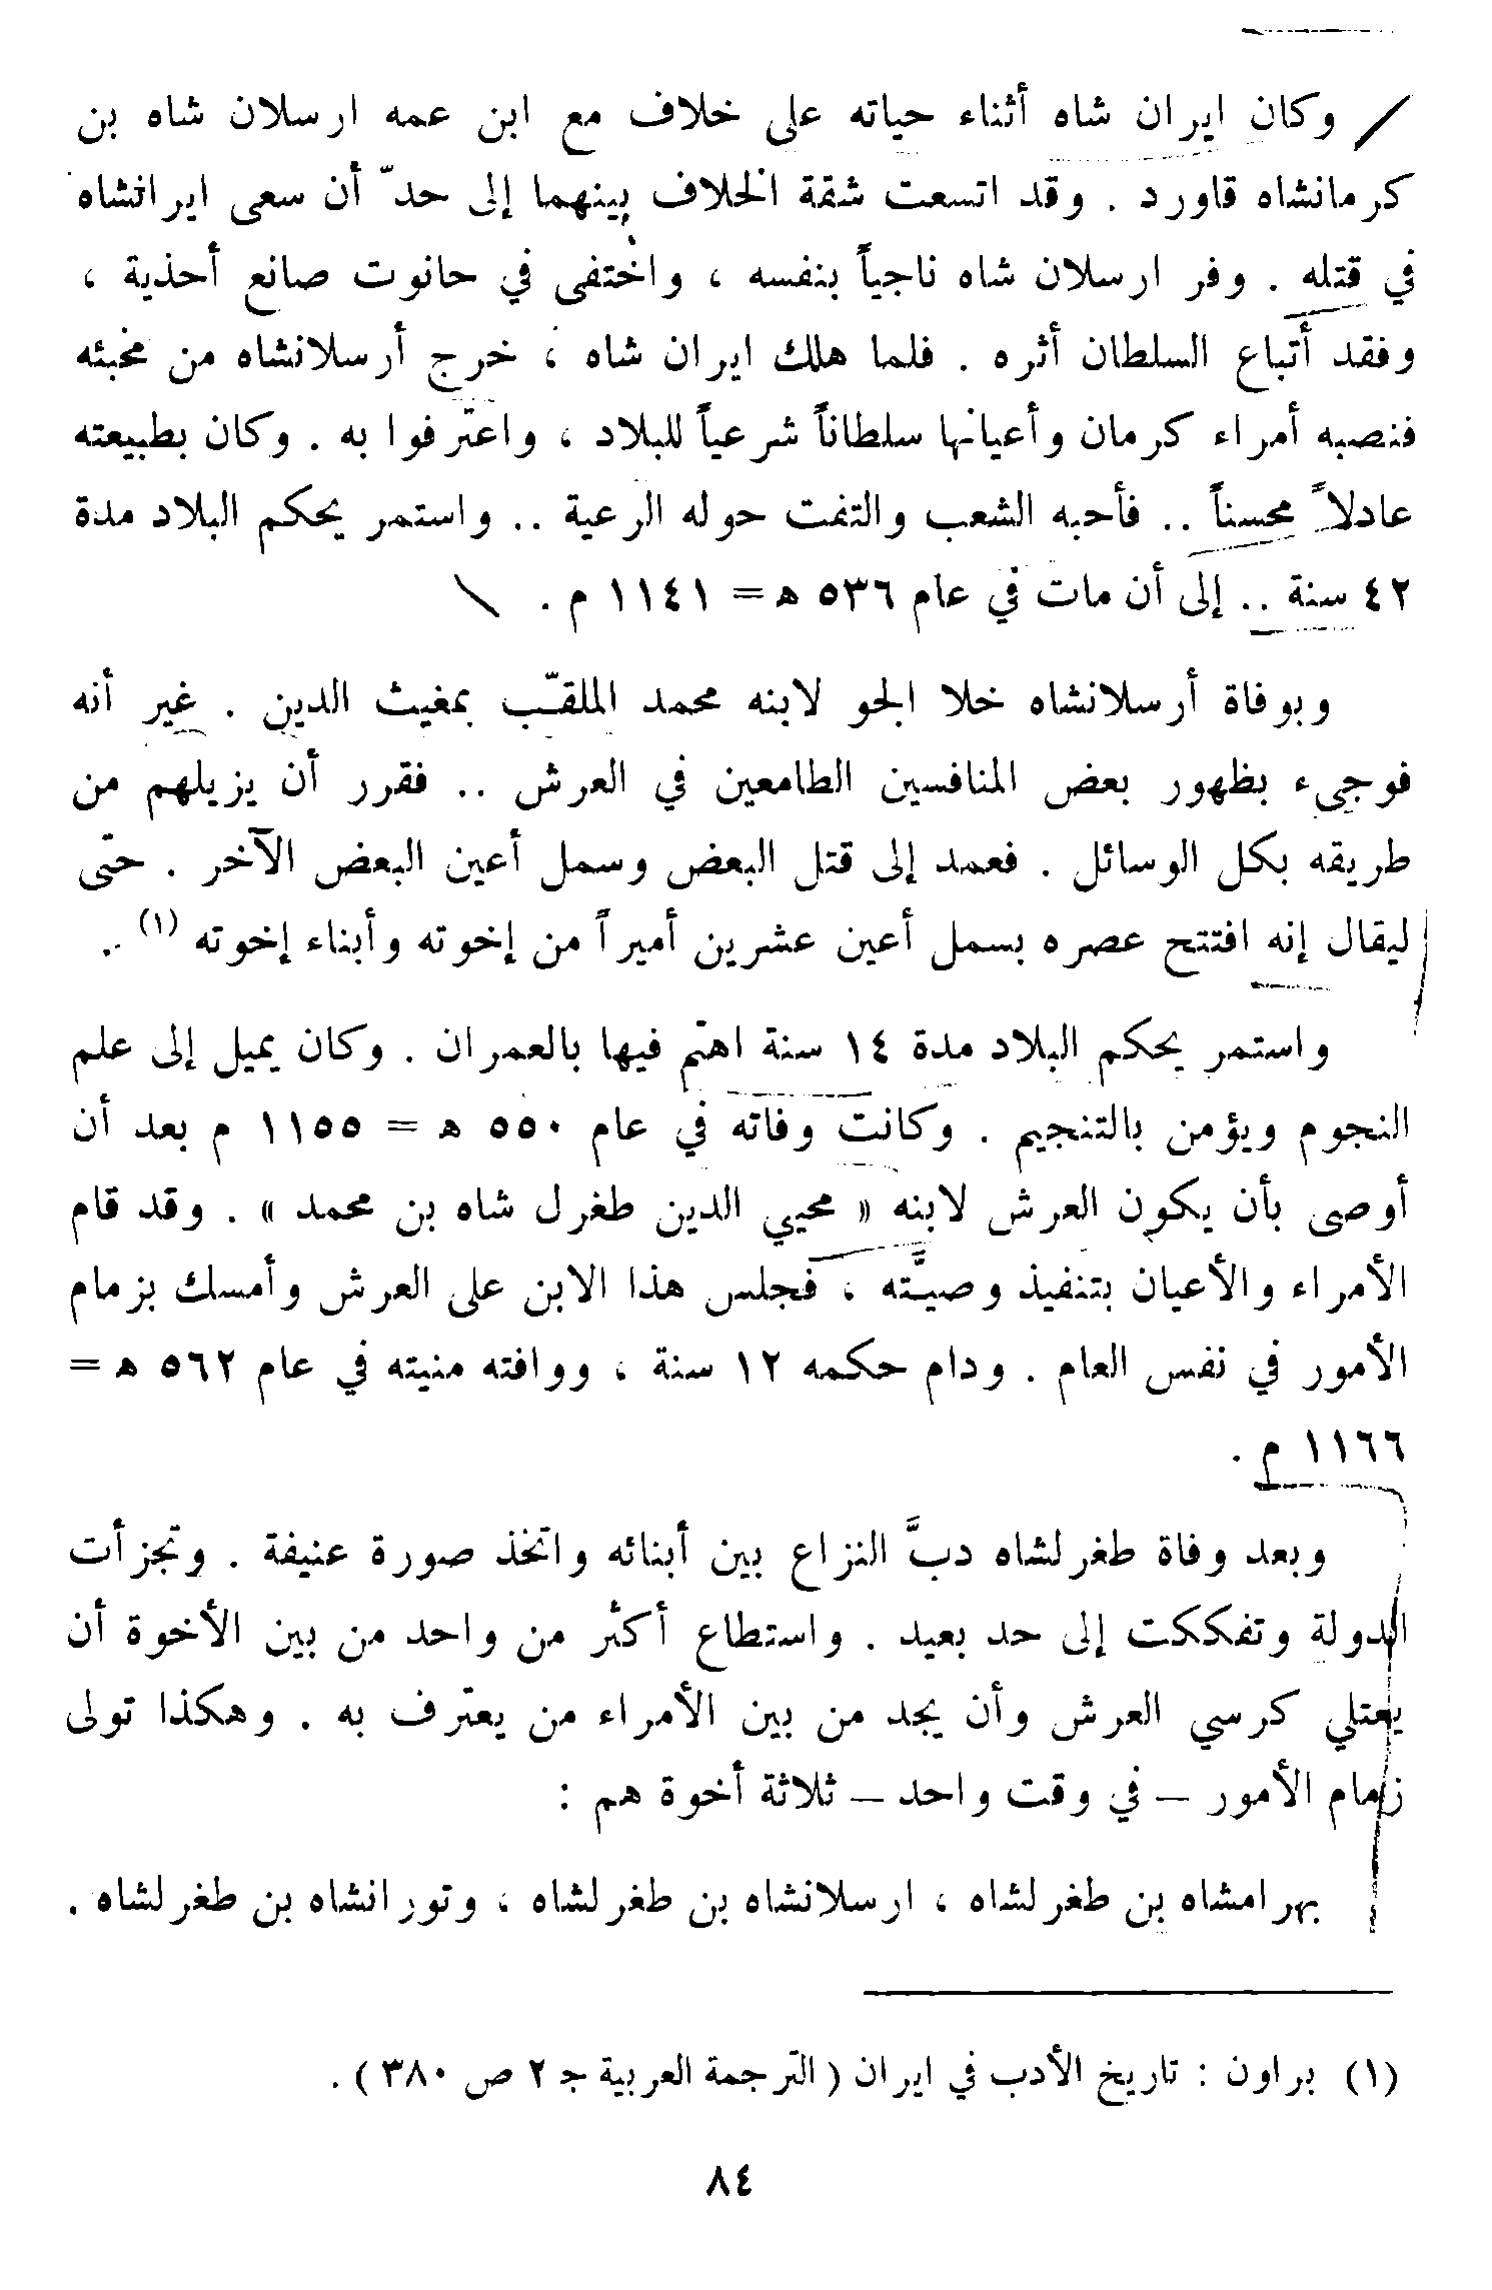 وكان ايران شاه أثناء حياته على خلاف مع ابن عمه ارسلان شاه بن
كرمانشاه قاورد . وقد اتسعت شقة الخلاف بينهما إلى حدّ أن سعى ايرانشاه
في قتله . وفر ارسلان شاه ناجياً بنفسه ، واختفى في حانوت صانع أحذية ،
وفقد أتباع السلطان أثره . فلما هلك ايران شاه ، خرج أرسلانشاه من مخبئه
فنصبه أمراء كرمان وأعيانها سلطاناً شرعياً للبلاد ، واعترفوا به . وكان بطبيعته
عادلاً محسناً .. فأحبه الشعب والتفت حوله الرعية .. واستمر يحكم البلاد مدة
٤٢ سنة .. إلى أن مات في عام ٥٣٦ ه = ١١٤١ م .
وبوفاة أرسلانشاه خلا الجو لابنه محمد الملقّب بمغيث الدين . غير أنه
فوجىء بظهور بعض المنافسين الطامعين في العرش .. فقرر أن يزيلهم من
طريقه بكل الوسائل . فعمد إلى قتل البعض وسمل أعين البعض الآخر . حتى
ليقال إنه افتتح عصره بسمل أعين عشرين أميراً من إخوته وأبناء إخوته (١) ..
واستمر يحكم البلاد مدة ١٤ سنة اهتم فيها بالعمران . وكان يميل إلى علم
النجوم ويؤمن بالتنجيم . وكانت وفاته في عام ٥٥٠ ه = ١١٥٥ م بعد أن
أوصى بأن يكون العرش لابنه « محيي الدين طغرل شاه بن محمد » . وقد قام
الأمراء والأعيان بتنفيذ وصيَّته ، فجلس هذا الابن على العرش وأمسك بزمام
الأمور في نفس العام . ودام حكمه ١٢ سنة ، ووافته منيته في عام ٥٦٢ ه =
١١٦٦ م .
وبعد وفاة طغرلشاه دبَّ النزاع بين أبنائه واتخذ صورة عنيفة . وتجزأت
الدولة وتفككت إلى حد بعيد . واستطاع أكثر من واحد من بين الأخوة أن
يعتلي كرسي العرش وأن يجد من بين الأمراء من يعترف به . وهكذا تولى
زمام الأمور – في وقت واحد – ثلاثة أخوة هم :
بهرامشاه بن طغرلشاه ، ارسلانشاه بن طغرلشاه ، وتورانشاه بن طغرلشاه .
(١) براون : تاريخ الأدب في ايران ( الترجمة العربية ج ٢ ص ٣٨٠ ) .
٨٤